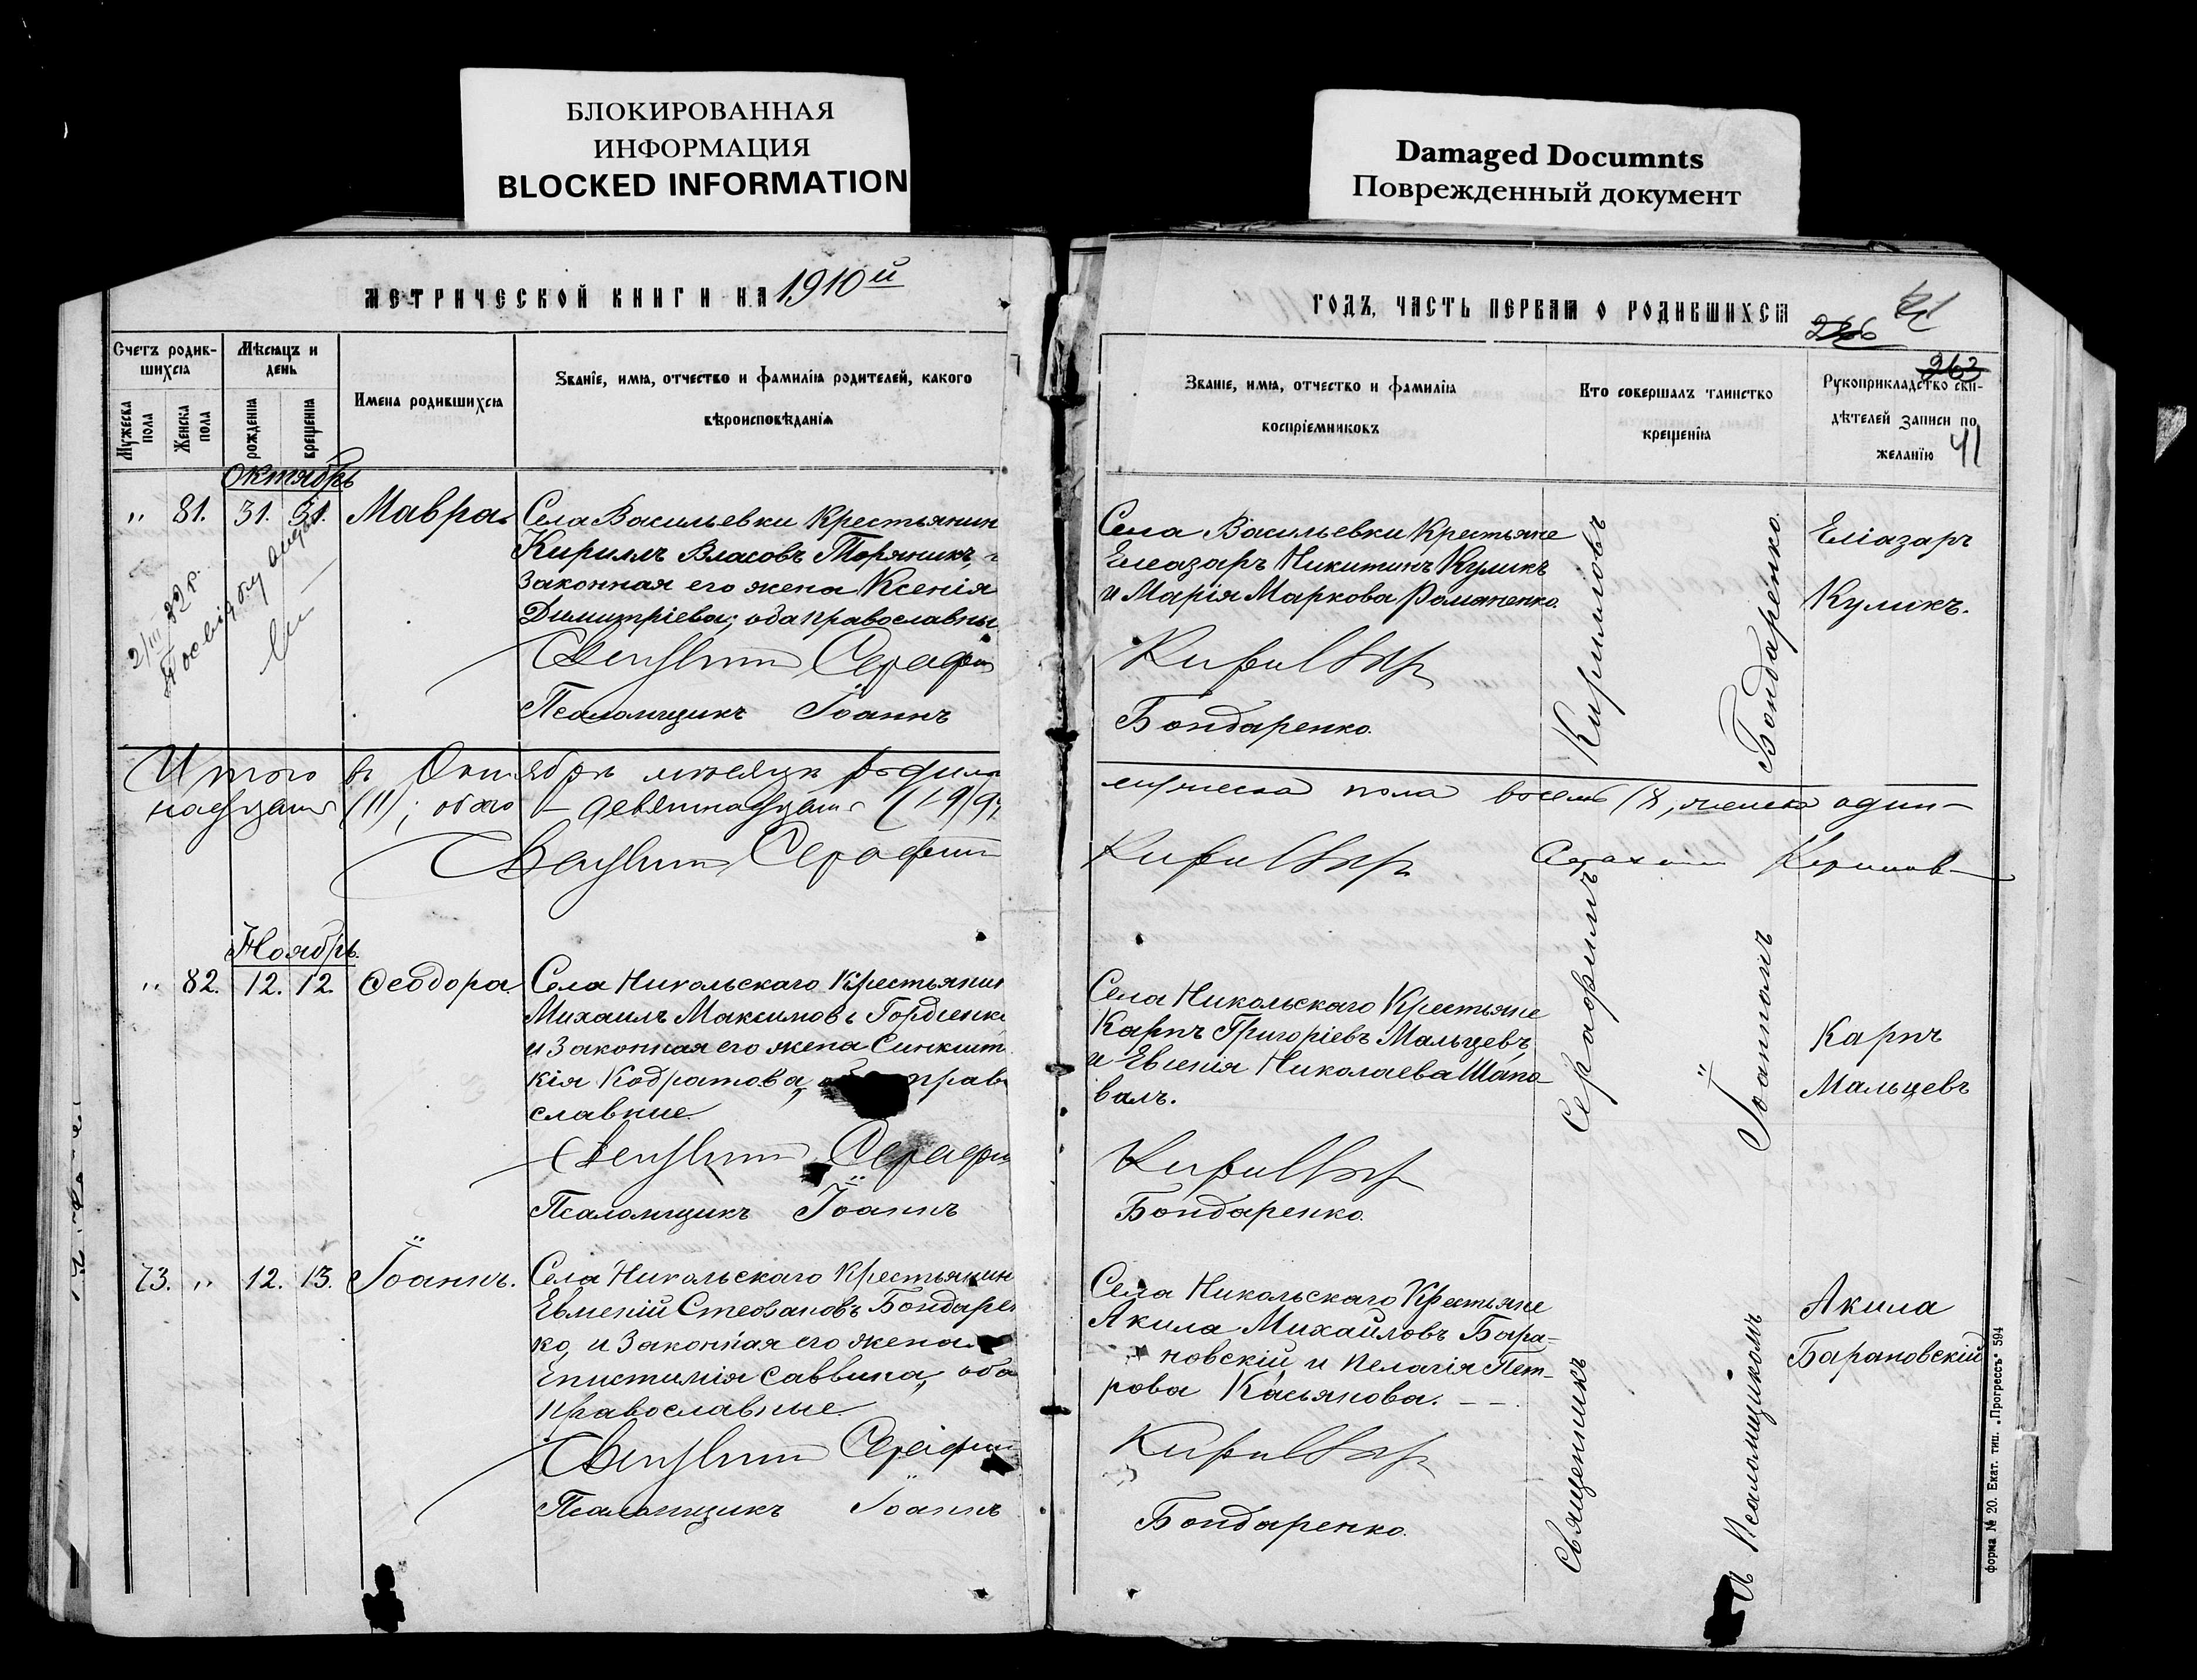 БЛОКИРОВАННАЯ
ИНФОРМАЦИЯ
BLOCKED INFORMATION
Damaged Documnts
Поврежденный документ
МЕТРИЧЕСКОЙ КНИГИ НА 1910й
Счетъ родив-
шихся
Мѣсяцъ и
день
Мужеска
пола
Женска
пола
рожденія
крещенія
Имена родившихся
Званіе, имя, отчество и фамилія родителей, какого
вѣроисповѣданія
Октябрь
" 81. 31. 31. Мавра.
Села Васильевки Крестьянин
Кириллъ Власовъ Торяникъ,
законная его жена Ксенія
Димитріева; оба православны
2/III 32 р.
Священник Серафим
Псаломщикъ Іоаннъ
Итого въ Октябрѣ месяцѣ родило
надцать (11); обоего – девятнадцать (19)
Священник Серафим
Ноябрь.
" 82. 12. 12. Ѳеодора.
Села Никольскаго Крестьянин
Михаилъ Максимовъ Гордіенко
и Законная его жена Синклит
кія Кодратова, прав
славные.
Священник Серафим
Псаломщикъ Іоаннъ
73. " 12. 13. Іоаннъ.
Села Никольскаго Крестьянин
Евменій Стефановъ Бондарен
ко, и Законная его жена
Епистимія Саввина, оба
православные.
Священник Серафим
Псаломщикъ Іоаннъ
ГОДЪ, ЧАСТЬ ПЕРВАЯ О РОДИВШИХСЯ
263
41
Званіе, имя, отчество и фамилія
воспріемниковъ
Кто совершалъ таинство
крещенія
Рукоприкладство сви-
дѣтелей записи по
желанію
Села Васильевки Крестьяне
Елеазаръ Никитинъ Куликъ
и Марія Маркова Романенко.
Бондаренко.
Еліазаръ
Куликъ.
мужеска пола восемь (8), женска один–
Села Никольскаго Крестьяне
Карпъ Григоріевъ Мальцевъ,
и Евгенія Николаева Шапо
валъ.
Бондаренко.
Карпъ
Мальцевъ
Села Никольскаго Крестьяне
Акила Михайловъ Бара-
новскій и Пелагія Пет-
рова Касьянова. – –
Бондаренко.
Акила
Барановскій
Священникъ
Серафимъ
Кирилловъ
Псаломщикомъ
Іоанномъ
Бондаренко.
форма № 20. Екат. тип. „Прогрессъ" 594